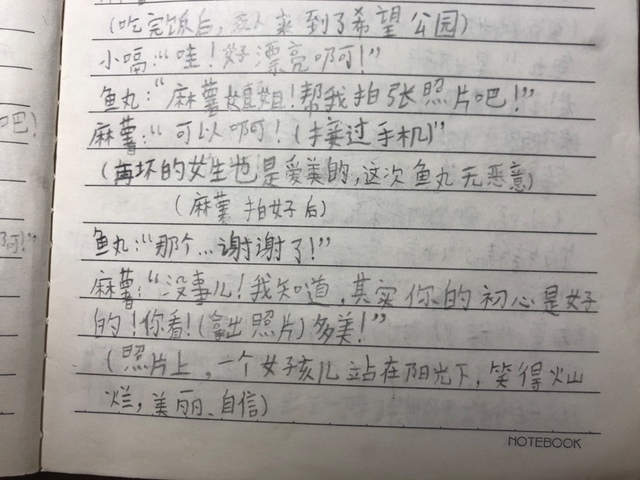 (吃完饭后,三人来到了希望公园)
小嗝:“哇!好漂亮啊!”
鱼丸:“麻薯姐姐!帮我拍张照片吧!”
麻薯:“可以啊!(接过手机)”
(再坏的女生也是爱美的,这次鱼丸无恶意)
(麻薯拍好后)
鱼丸:“那个…谢谢了!”
麻薯:“没事儿!我知道,其实你的初心是好
的!你看!(拿出照片)多美!”
(照片上,一个女孩儿站在阳光下,笑得灿
烂,美丽、自信)
NOTEBOOK
吧!
啊!”